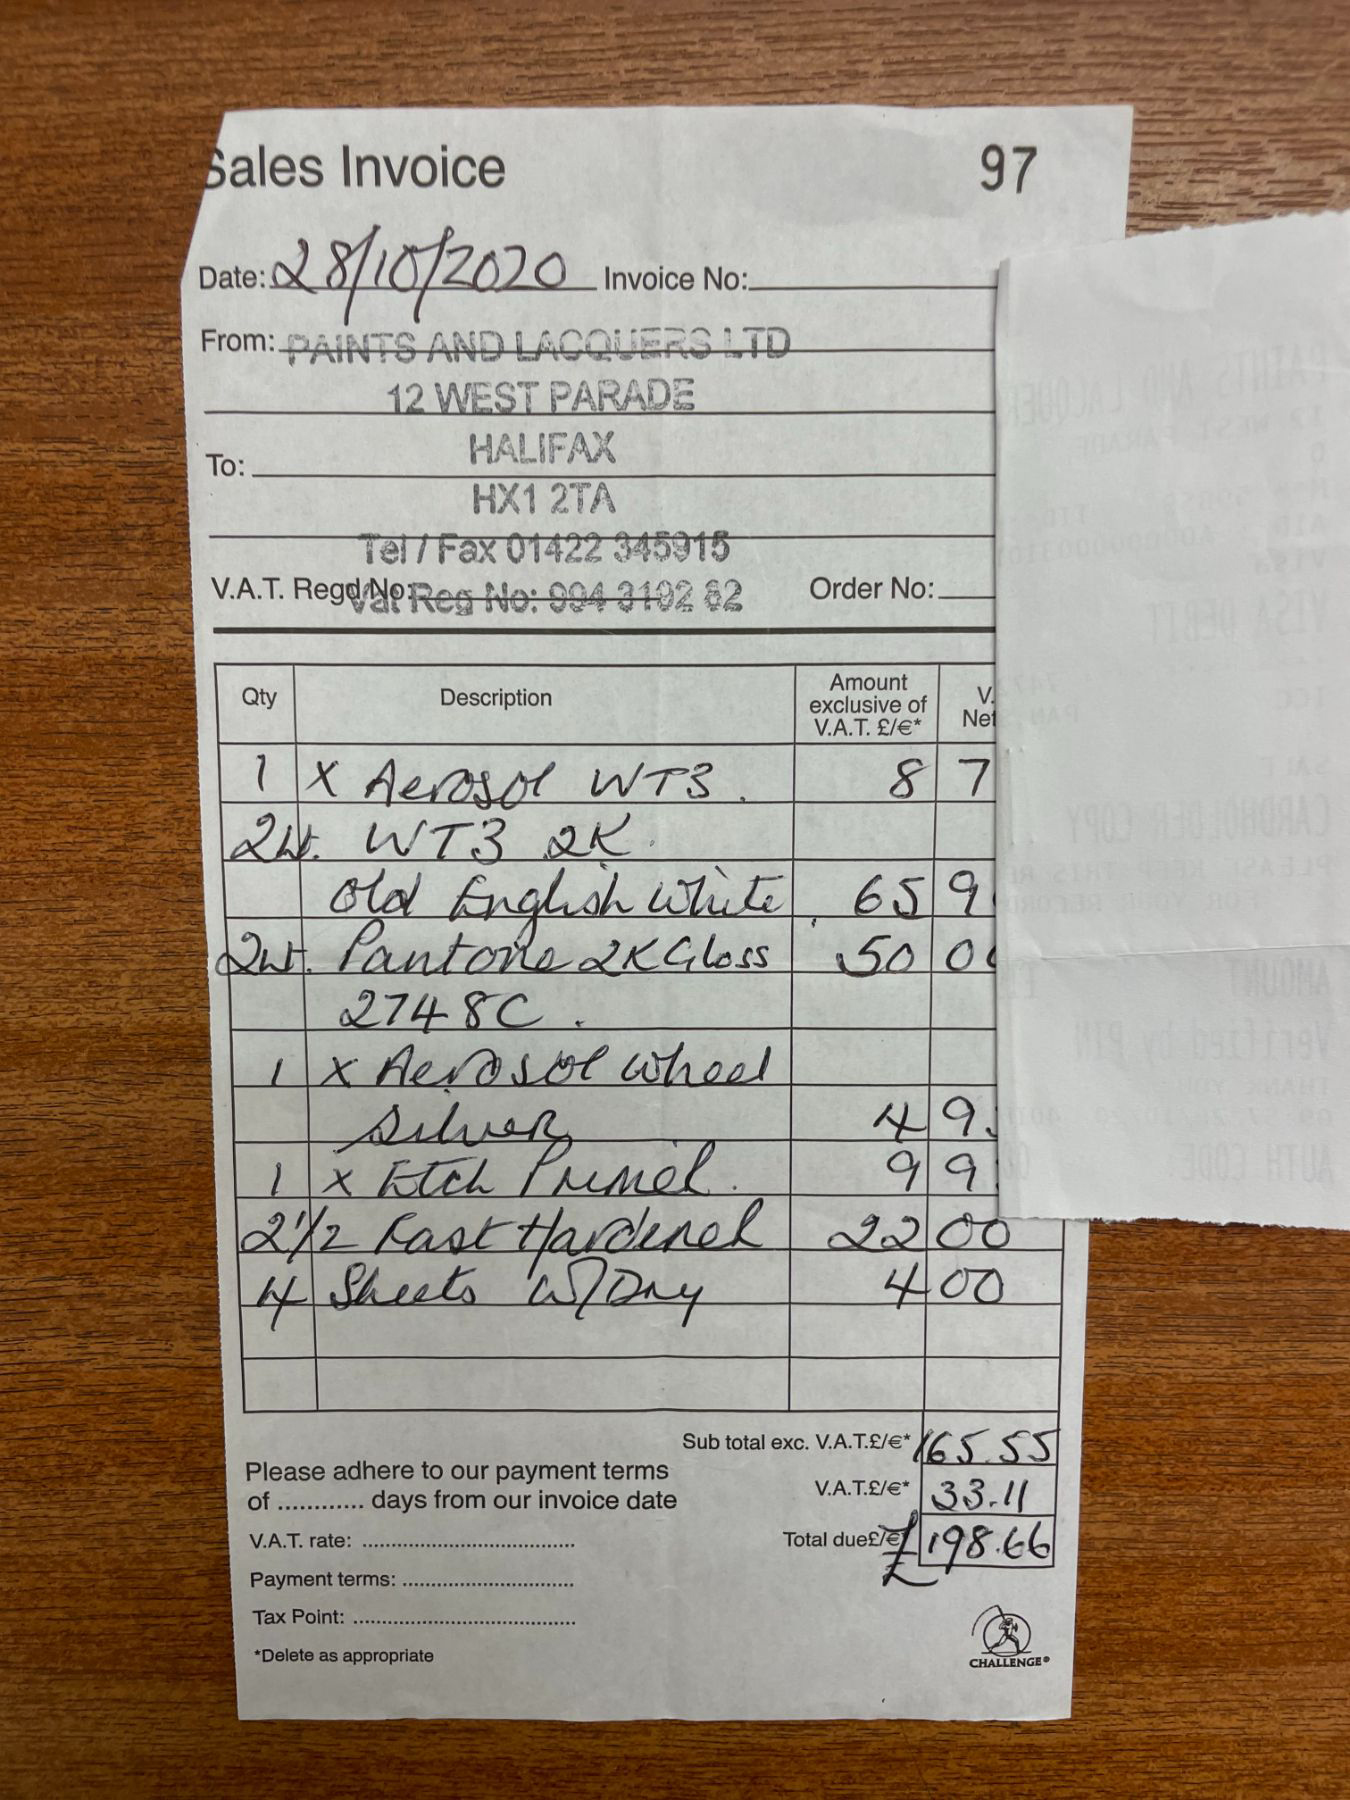 Sales Invoice 97
Date: 28/10/2020 Invoice No:
From: PAINTS AND LACQUERS LTD
12 WEST PARADE
HALIFAX
To:
HX1 2TA
Tel / Fax 01422 345915
V.A.T. Regd No: Vat Reg No: 994 3192 62 Order No:
Qty Description Amount exclusive of V.A.T. £/€* V. Net
1 x Aerosol WT3. 8 7
2Lt. WT3 2K.
Old English White 65 9
2Lt. Pantone 2K Gloss 50 00
2748C.
1 x Aerosol Wheel
Silver 4 9
1 x Etch Primer. 9 9
2 1/2 Fast Hardener 22 00
4 Sheets W/Dry 4 00
Sub total exc. V.A.T.£/€* 165.55
Please adhere to our payment terms
of ............ days from our invoice date
V.A.T.£/€* 33.11
V.A.T. rate: ...................................
Total due£/€ £198.66
Payment terms: ............................
Tax Point: .....................................
*Delete as appropriate
CHALLENGE®
PAINTS AND LACQUER
12 WEST PARADE
VISA DEBIT
SALE
CARDHOLDER COPY
PLEASE KEEP THIS RE
FOR YOUR RECORD
AMOUNT
Verified by PIN
THANK YOU
AUTH CODE